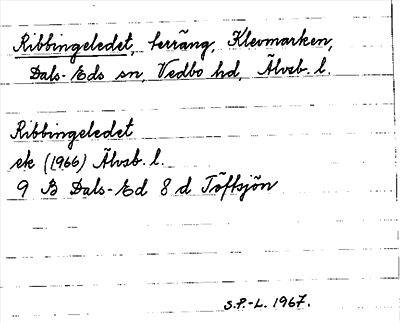 Ribbingeledet, terräng, Klevmarken,
Dals-Eds sn, Vedbo hd, Älvsb. l.
Ribbingeledet
ek (1966) Älvsb. l.
9 B Dals-Ed 8 d Töftsjön
S.P.-L. 1967.